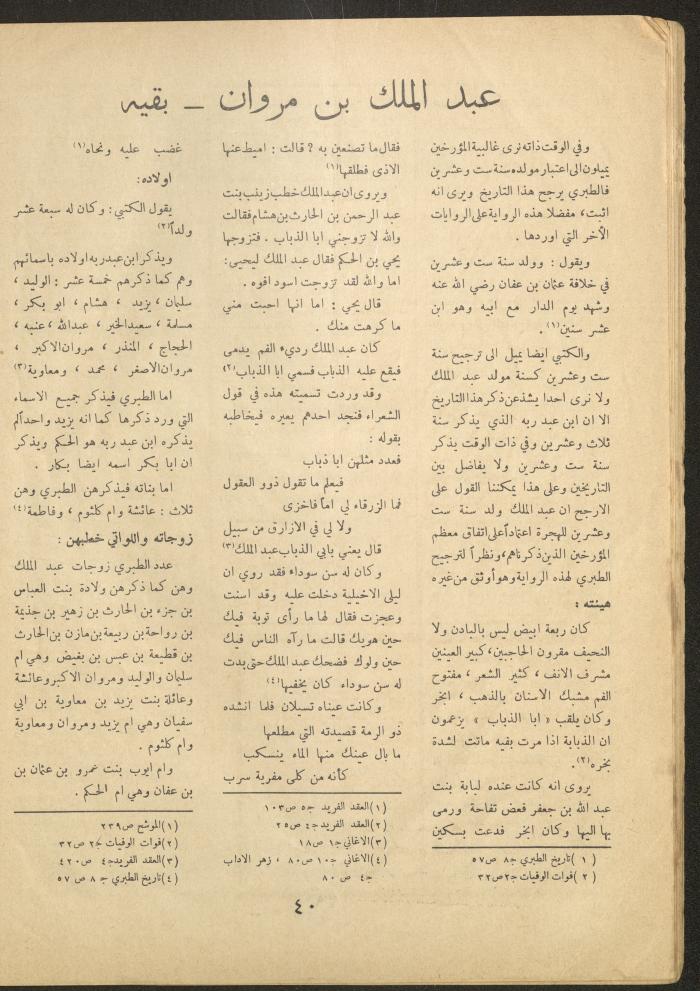 عبد الملك بن مروان - بقيه
وفي الوقت ذاته نرى غالبية المؤرخين
يميلون الى اعتبار مولده سنة ست وعشرين
فالطبري يرجح هذا التاريخ ويرى انه
اثبت، مفضلا هذه الرواية على الروايات
الأخر التي اوردها .
ويقول : وولد سنة ست وعشرين
في خلافة عثمان بن عفان رضي الله عنه
وشهد يوم الدار مع ابيه وهو ابن
عشر سنين(١) .
والكتبي ايضا يميل الى ترجيح سنة
ست وعشرين كسنة مولد عبد الملك
ولا نرى احدا يشذ عن ذكر هذا التاريخ
الا ان ابن عبد ربه الذي يذكر سنة
ثلاث وعشرين وفي ذات الوقت يذكر
سنة ست وعشرين ولا يفاضل بين
التاريخين وعلى هذا يمكننا القول على
الارجح ان عبد الملك ولد سنة ست
وعشرين للهجرة اعتمادا على اتفاق معظم
المؤرخين الذين ذكرناهم، ونظرا لترجيح
الطبري لهذه الرواية وهو أوثق من غيره
هيئته :
كان ربعة ابيض ليس بالبادن ولا
النحيف مقرون الحاجبين، كبير العينين
مشرف الانف ، كثير الشعر ، مفتوح
الفم مشبك الاسنان بالذهب ، ابخر
وكان يلقب « ابا الذباب » يزعمون
ان الذبابة اذا مرت بفيه ماتت لشدة
بخره(٢).
يروى انه كانت عنده لبابة بنت
عبد الله بن جعفر فعض تفاحة ورمى
بها اليها وكان ابخر فدعت بسكين
( ١ )تاريخ الطبري ج٨ ص٥٧
( ٢ )فوات الوفيات ج٢ص٣٢
فقال ما تصنعين به ? قالت : اميط عنها
الاذى فطلقها(١)
ويروى ان عبد الملك خطب زينب بنت
عبد الرحمن بن الحارث بن هشام فقالت
والله لا تزوجني ابا الذباب . فتزوجها
يحي بن الحكم فقال عبد الملك ليحيى:
اما والله لقد تزوجت اسود افوه .
قال يحي : اما انها احبت مني
ما كرهت منك .
كان عبد الملك رديء الفم يدمى
فيقع عليه الذباب فسمي ابا الذباب(٢)
وقد وردت تسميته هذه في قول
الشعراء فنجد احدهم يعيره فيخاطبه
بقوله :
فعدد مثلهن ابا ذباب
فيعلم ما تقول ذوو العقول
فما الزرقاء لي اما فاخزى
ولا لي في الازارق من سبيل
قال يعني بابي الذباب عبد الملك(٣)
وكان له سن سوداء فقد روي ان
ليلى الاخيلية دخلت عليه وقد اسنت
وعجزت فقال لها ما رأى توبة فيك
حين هويك قالت ما رآه الناس فيك
حين ولوك فضحك عبد الملك حتى بدت
له سن سوداء كان يخفيها(٤)
وكانت عيناه تسيلان فلما انشده
ذو الرمة قصيدته التي مطلعها
ما بال عينك منها الماء ينسكب
كأنه من كلى مفرية سرب
(١)العقد الفريد ج٥ ص١٠٣
(٢)العقد الفريد ج٤ ص٢٥
(٣)الاغاني ج١ ص١٨
(٤)الاغاني ج١٠ ص٨٠ ، زهر الاداب
ج٤ ص ٨٠
غضب عليه ونحاه(١)
اولاده:
يقول الكتبي : وكان له سبعة عشر
ولدا(٢)
ويذكر ابن عبد ربه اولاده باسمائهم
وهم كما ذكرهم خمسة عشر : الوليد ،
سليمان ، يزيد ، هشام ، ابو بكر ،
مسلمة ، سعيد الخير ، عبدالله ، عنبسه ،
الحجاج ، المنذر ، مروان الاكبر ،
مروان الاصغر ، محمد ، ومعاوية(٣)
اما الطبري فيذكر جميع الاسماء
التي ورد ذكرها كما انه يزيد واحدا لم
يذكره ابن عبد ربه هو الحكم ويذكر
ان ابا بكر اسمه ايضا بكار .
اما بناته فيذكرهن الطبري وهن
ثلاث : عائشة وام كلثوم ، وفاطمة(٤)
زوجاته واللواتي خطبهن :
عدد الطبري زوجات عبد الملك
وهن كما ذكرهن ولادة بنت العباس
بن جزء بن الحارث بن زهير بن جذيمة
بن رواحة بن ربيعة بن مازن بن الحارث
بن قطيعة بن عبس بن بغيض وهي ام
سليمان والوليد ومروان الاكبر وعائشة
وعائلة بنت يزيد بن معاوية بن ابي
سفيان وهي ام يزيد ومروان ومعاوية
وام كلثوم .
وام ايوب بنت عمرو بن عثمان بن
بن عفان وهي ام الحكم .
(١)الموشح ص٢٣٩
(٢)فوات الوفيات ج٢ ص٣٢
(٣)العقد الفريد ج٤ ص٤٢٠
(٤)تاريخ الطبري ج ٨ ص ٥٧
٤٠